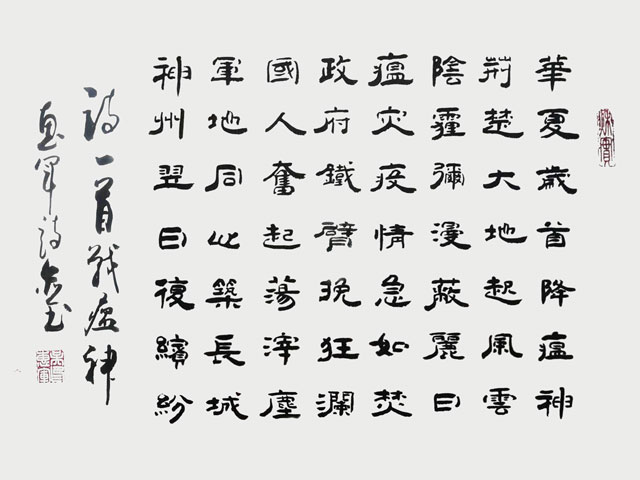 華夏歲首降瘟神
荊楚大地起風雲
陰霾彌漫蔽麗日
瘟灾疫情急如焚
政府鐵臂挽狂瀾
國人奮起蕩滓塵
軍地同心築長城
神州翌日復繽紛
詩一首戰瘟神
惠軍詩